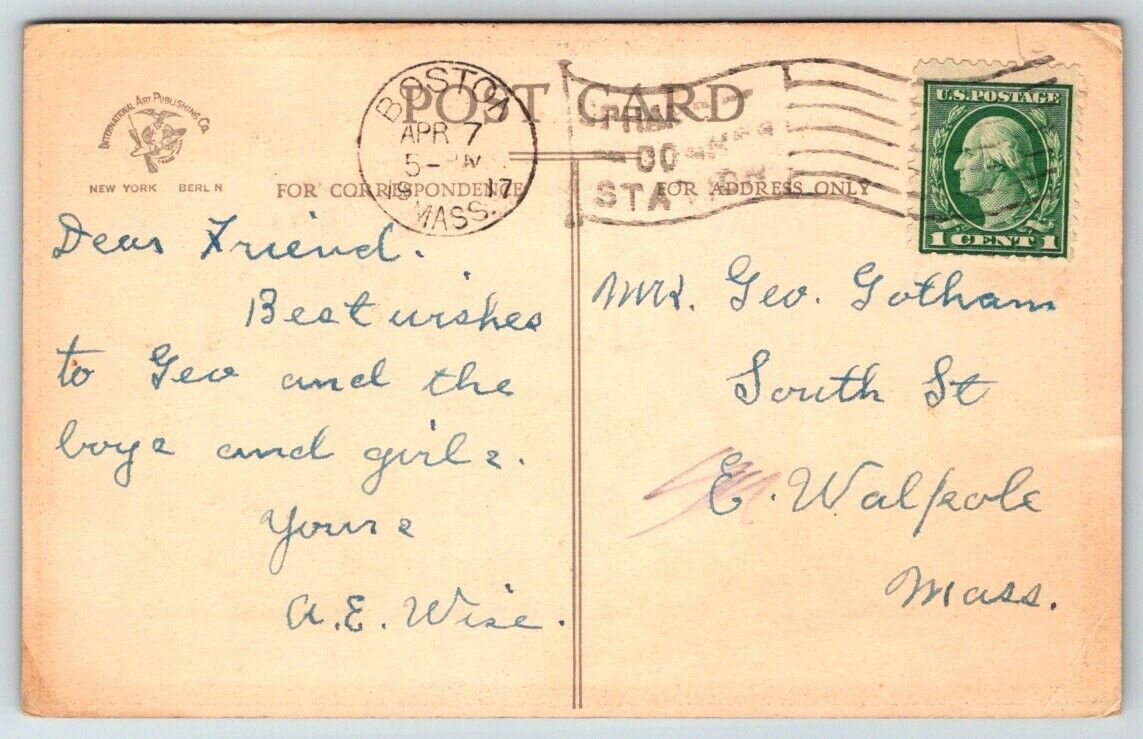 POST CARD
INTERNATIONAL ART PUBLISHING CO.
NEW YORK BERLIN
BOSTON
APR 7
5-PM
1917
MASS.
STATION
U.S. POSTAGE
1 CENT 1
FOR CORRESPONDENCE
FOR ADDRESS ONLY
Dear Friend.
Best wishes
to Geo and the
boys and girls.
Yours
A.E. Wise.
Mrs. Geo. Gotham
South St
E. Walpole
Mass.